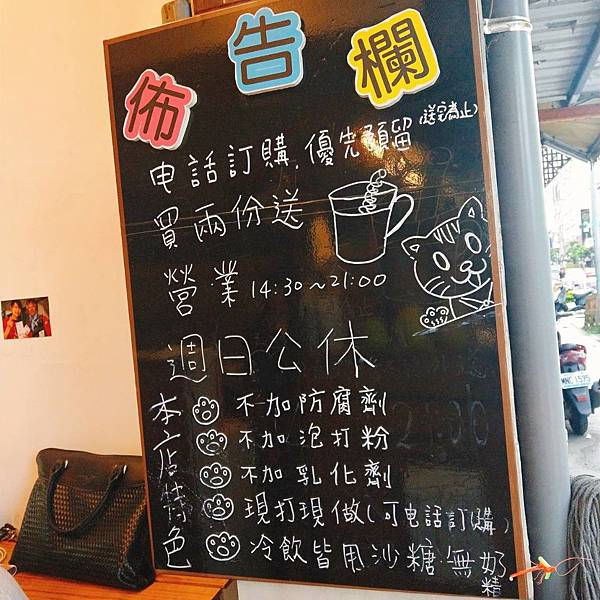 佈告欄
电話訂購,優先預留(送完為止)
買兩份送
營業14:30~21:00
週日公休
本店特色
不加防腐劑
不加泡打粉
不加乳化劑
現打現做(可电話訂購)
冷飲皆用沙糖·無奶精
MNC 1595